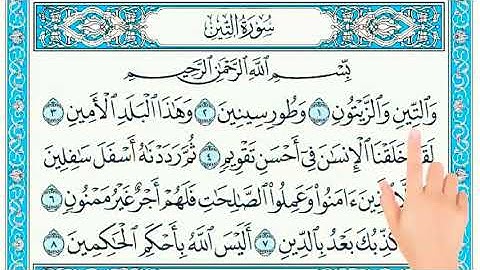 سُورَةُ التِّينِ
بِسْمِ ٱللَّهِ ٱلرَّحْمَٰنِ ٱلرَّحِيمِ
وَٱلتِّينِ وَٱلزَّيْتُونِ ١ وَطُورِ سِينِينَ ٢ وَهَٰذَا ٱلْبَلَدِ ٱلْأَمِينِ ٣
لَقَدْ خَلَقْنَا ٱلْإِنسَٰنَ فِىٓ أَحْسَنِ تَقْوِيمٍ ٤ ثُمَّ رَدَدْنَٰهُ أَسْفَلَ سَٰفِلِينَ
ٱلَّذِينَ ءَامَنُوا۟ وَعَمِلُوا۟ ٱلصَّٰلِحَٰتِ فَلَهُمْ أَجْرٌ غَيْرُ مَمْنُونٍ ٦
كَذِّبُكَ بَعْدُ بِٱلدِّينِ ٧ أَلَيْسَ ٱللَّهُ بِأَحْكَمِ ٱلْحَٰكِمِينَ ٨